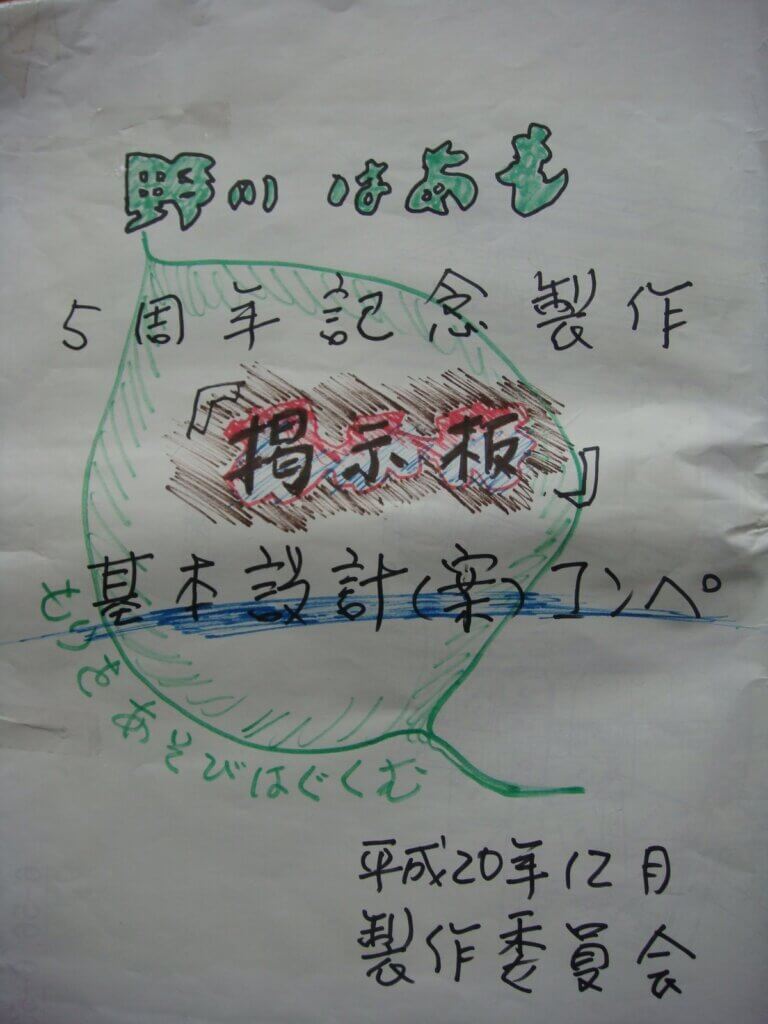 野川はあも
5周年記念製作
『掲示板』
基本設計(案)コンペ
とりとあそびはぐくむ
平成20年12月
製作委員会